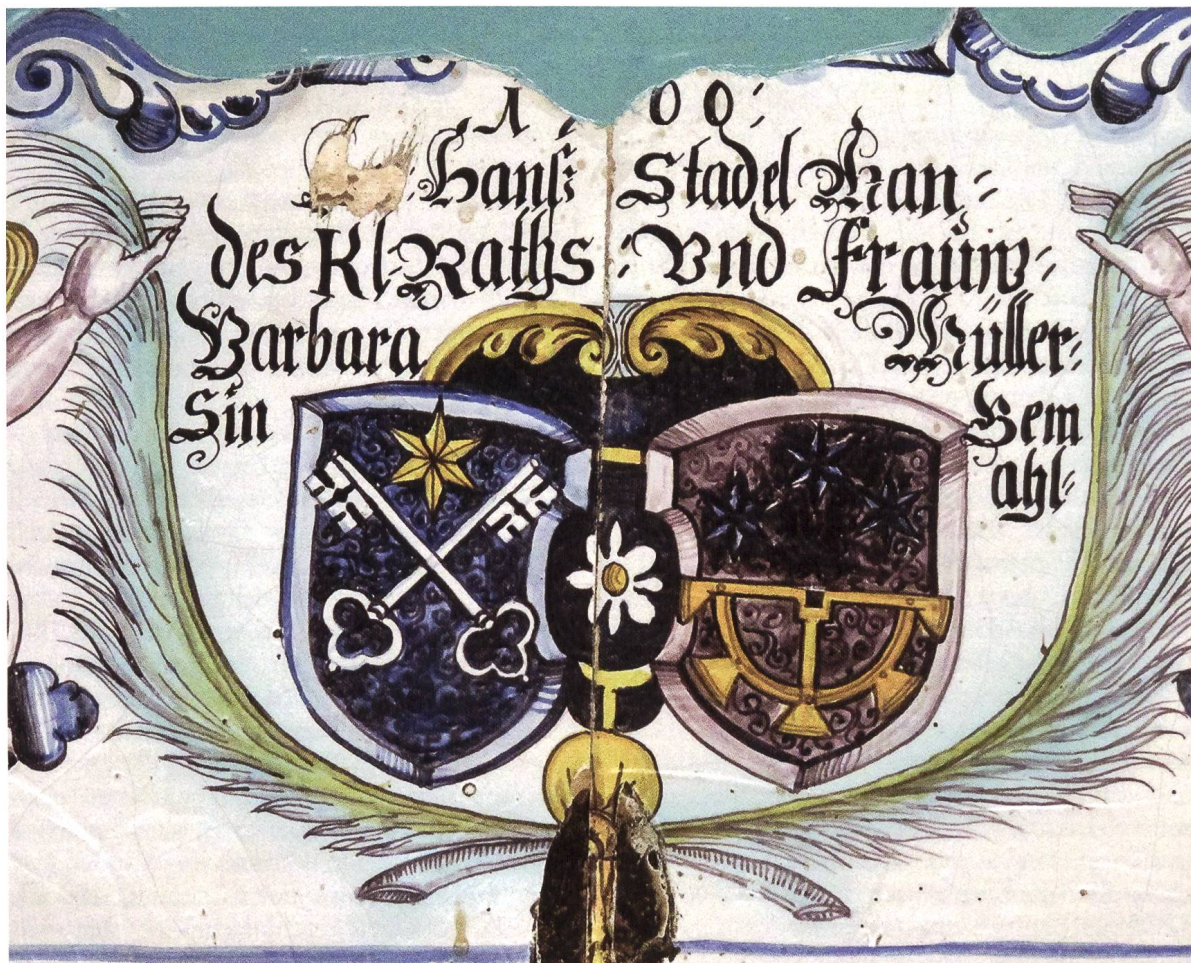 1 , 00:
Hanß: Stadel Man:
des Kl: Raths: Vnd Frauw:
Barbara Müller:
Sin Gemahl: